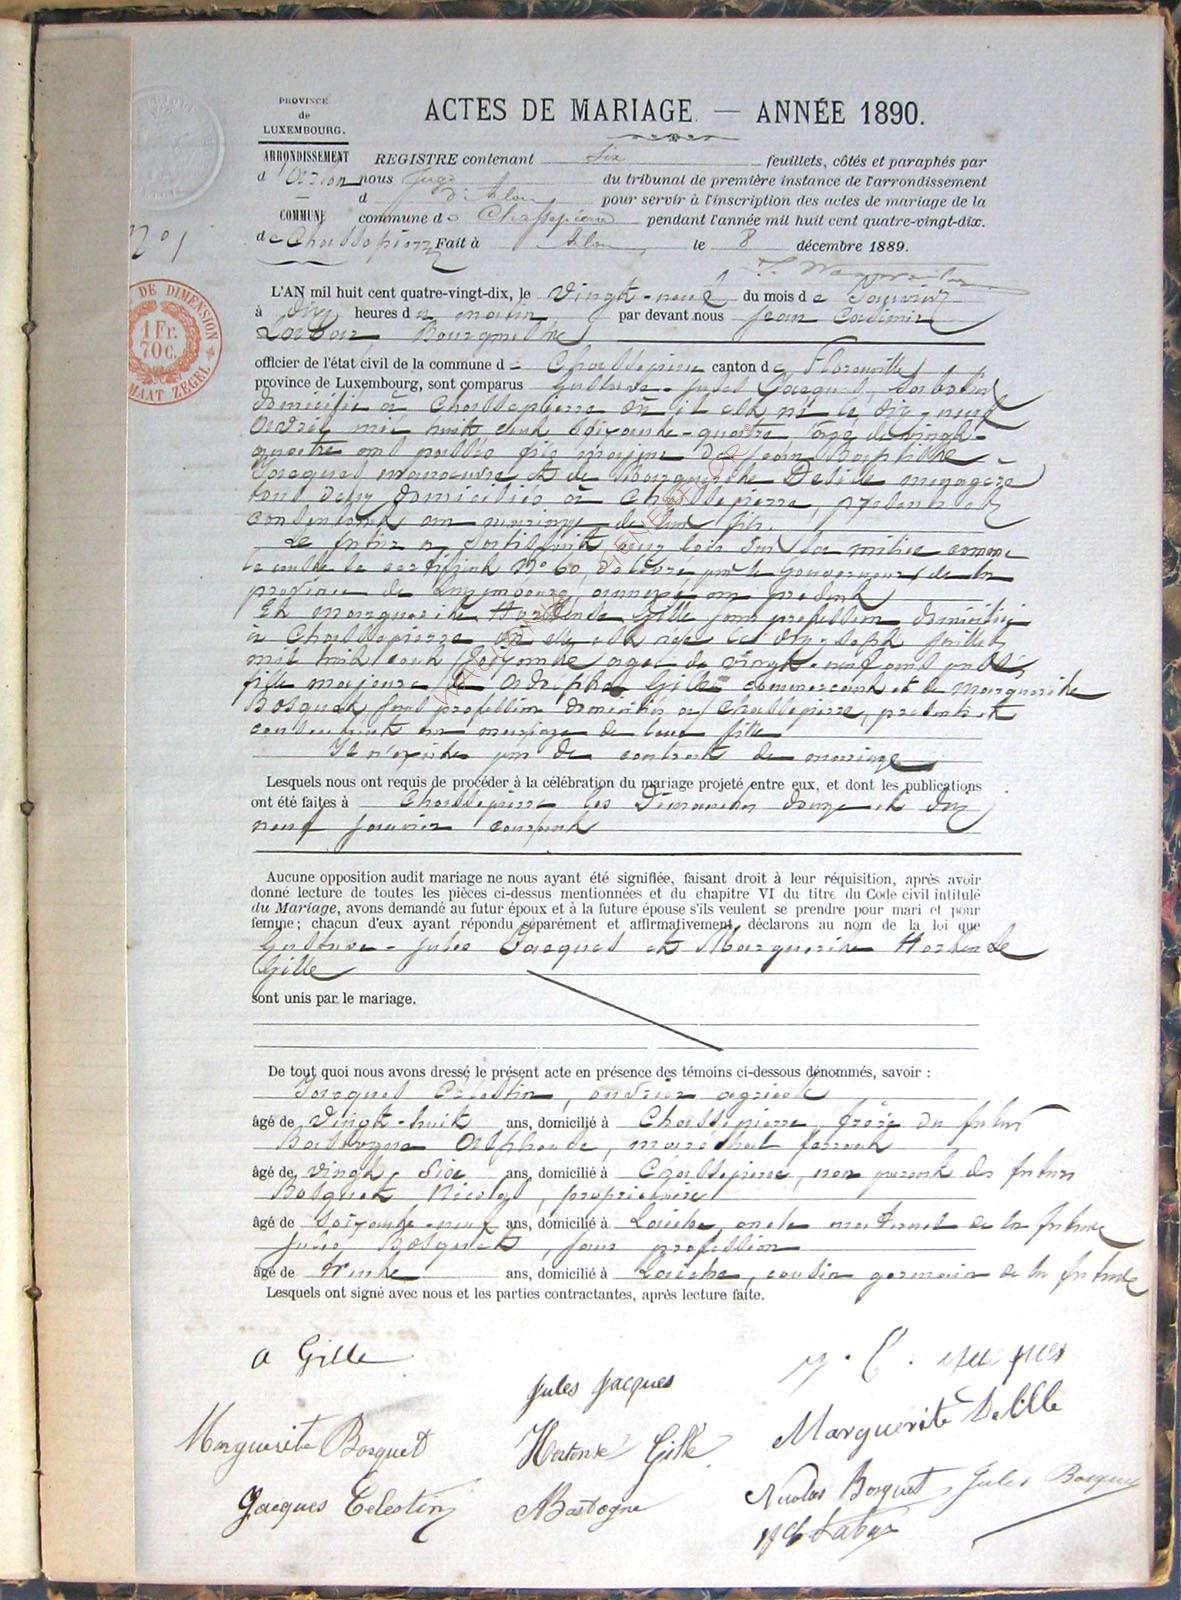 PROVINCE
de
LUXEMBOURG.
ARRONDISSEMENT
d'Arlon
COMMUNE
de Chassepierre
N° 1
ACTES DE MARIAGE. — ANNÉE 1890.
REGISTRE contenant six feuillets, côtés et paraphés par
nous Juge du tribunal de première instance de l'arrondissement
d'Arlon pour servir à l'inscription des actes de mariage de la
commune de Chassepierre pendant l'année mil huit cent quatre-vingt-dix.
Fait à Arlon le 8 décembre 1889.
DE DIMENSION
1 Fr.
70 C.
MAAT ZEGEL
L'AN mil huit cent quatre-vingt-dix, le vingt-neuf du mois de Janvier
à dix heures du matin par devant nous Jean Casimir
Bourgmestre
officier de l'état civil de la commune de Chassepierre canton de Florenville
province de Luxembourg, sont comparus Gustave-Jules Jacques,
domicilié à Chassepierre où il est né le dix-neuf
avril mil huit cent soixante-quatre, âgé de vingt-
quatre ans passés fils majeur de Jean Baptiste
Jacques manoeuvre et de Marguerite Delille ménagère
tous deux domiciliés à Chassepierre, présents et
consentants au mariage de leur fils.
Le futur a satisfait aux lois sur la milice comme
le certificat N° 60, délivré par le Gouverneur de la
province de Luxembourg, annexé au présent
Et Marguerite Hortense Gille sans profession domiciliée
à Chassepierre où elle est née le dix-sept Juillet
mil huit cent soixante âgée de vingt-neuf ans passés
fille majeure de Adolphe Gille commerçant et de Marguerite
Bosquet sans profession domiciliés à Chassepierre, présents et
consentants au mariage de leur fille
Il n'existe pas de contrat de mariage
Lesquels nous ont requis de procéder à la célébration du mariage projeté entre eux, et dont les publications
ont été faites à Chassepierre les Dimanches douze et dix
neuf janvier courant
Aucune opposition audit mariage ne nous ayant été signifiée, faisant droit à leur réquisition, après avoir
donné lecture de toutes les pièces ci-dessus mentionnées et du chapitre VI du titre du Code civil intitulé
du Mariage, avons demandé au futur époux et à la future épouse s'ils veulent se prendre pour mari et pour
femme ; chacun d'eux ayant répondu séparément et affirmativement, déclarons au nom de la loi que
Gustave-Jules Jacques et Marguerite Hortense
Gille
sont unis par le mariage.
De tout quoi nous avons dressé le présent acte en présence des témoins ci-dessous dénommés, savoir :
Jacques Célestin, ouvrier agricole
âgé de vingt-huit ans, domicilié à Chassepierre frère du futur
Bastogne Alphonse, maréchal ferrant
âgé de vingt-six ans, domicilié à Chassepierre, non parent des futurs
Bosquet Nicolas, propriétaire
âgé de soixante-neuf ans, domicilié à Laiche, oncle maternel de la future
Jules Bosquet, sans profession
âgé de trente ans, domicilié à Laiche, cousin germain de la future
Lesquels ont signé avec nous et les parties contractantes, après lecture faite.
a Gille
Jules Jacques
Marguerite Bosquet
Hortense Gille
Marguerite Delille
Jacques Celestin
Bastogne
Nicolas Bosquet
Jules Bosquet